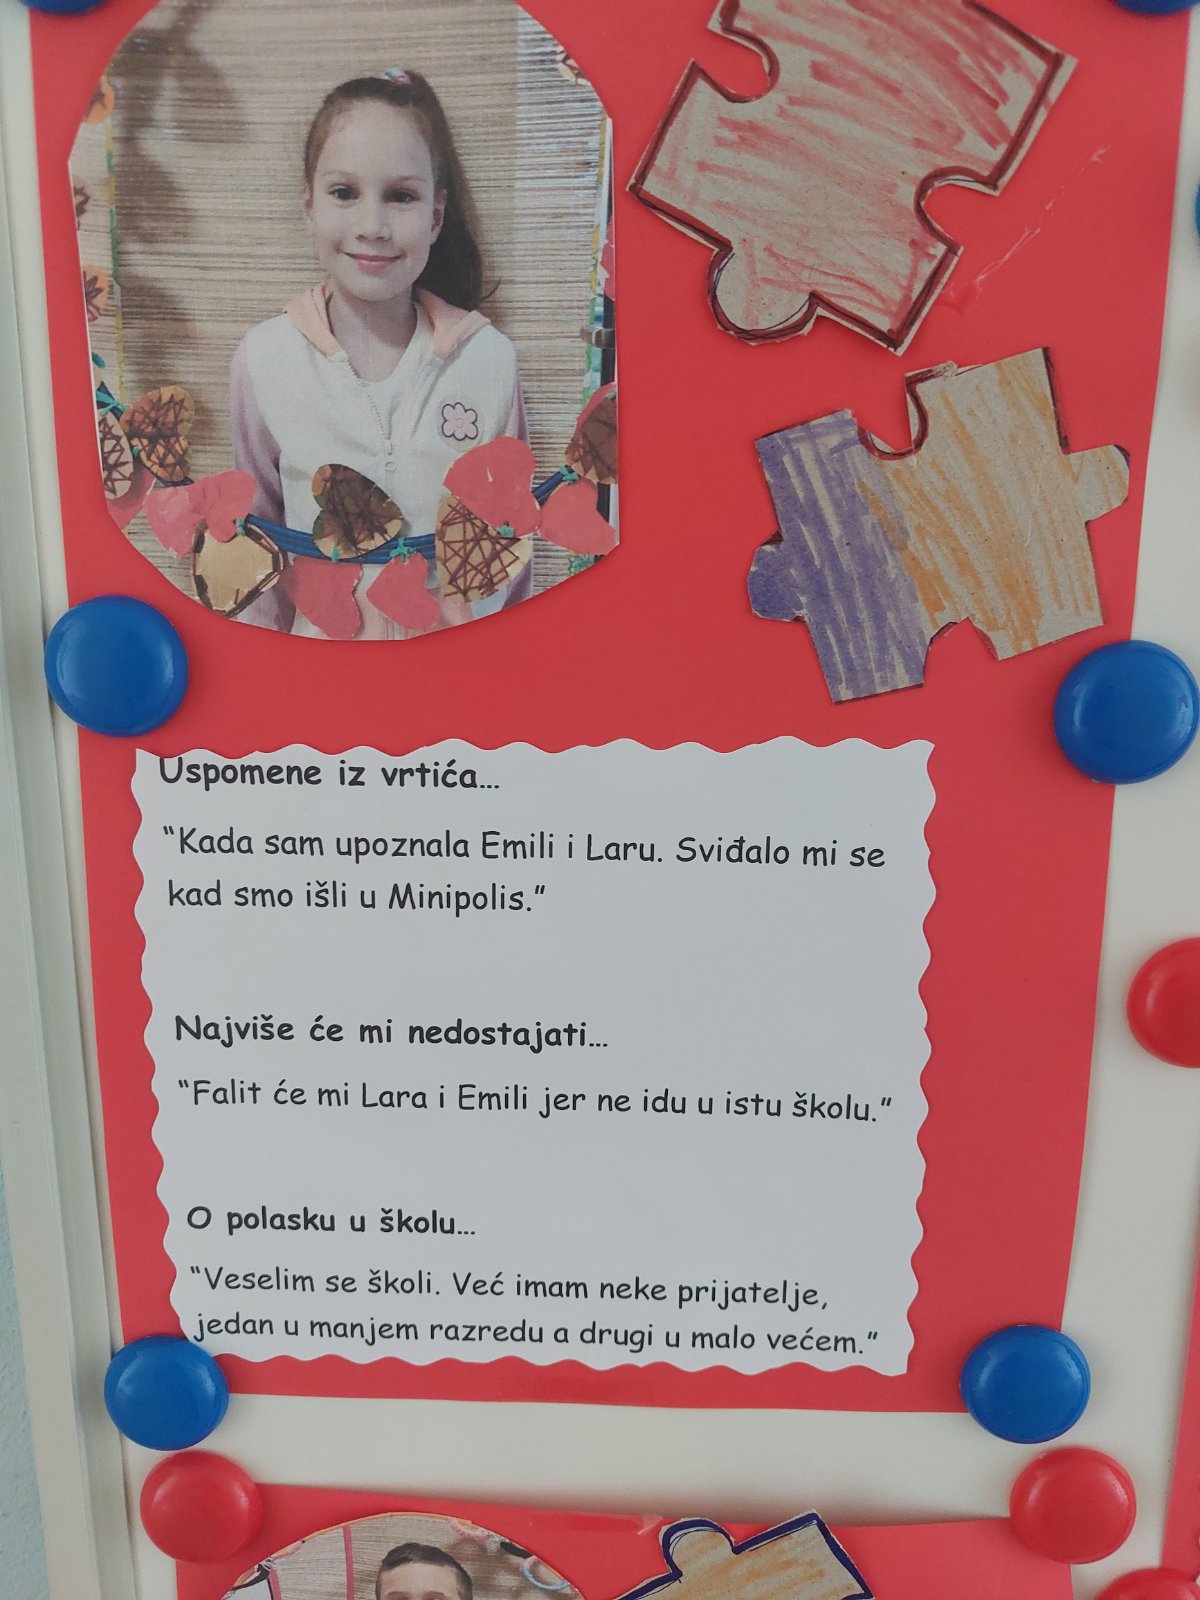 Uspomene iz vrtića...
"Kada sam upoznala Emili i Laru. Sviđalo mi se
kad smo išli u Minipolis."
Najviše će mi nedostajati...
"Falit će mi Lara i Emili jer ne idu u istu školu."
O polasku u školu...
"Veselim se školi. Već imam neke prijatelje,
jedan u manjem razredu a drugi u malo većem."